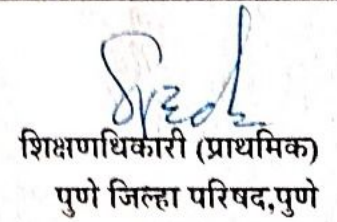 शिक्षणधिकारी (प्राथमिक)
पुणे जिल्हा परिषद,पुणे